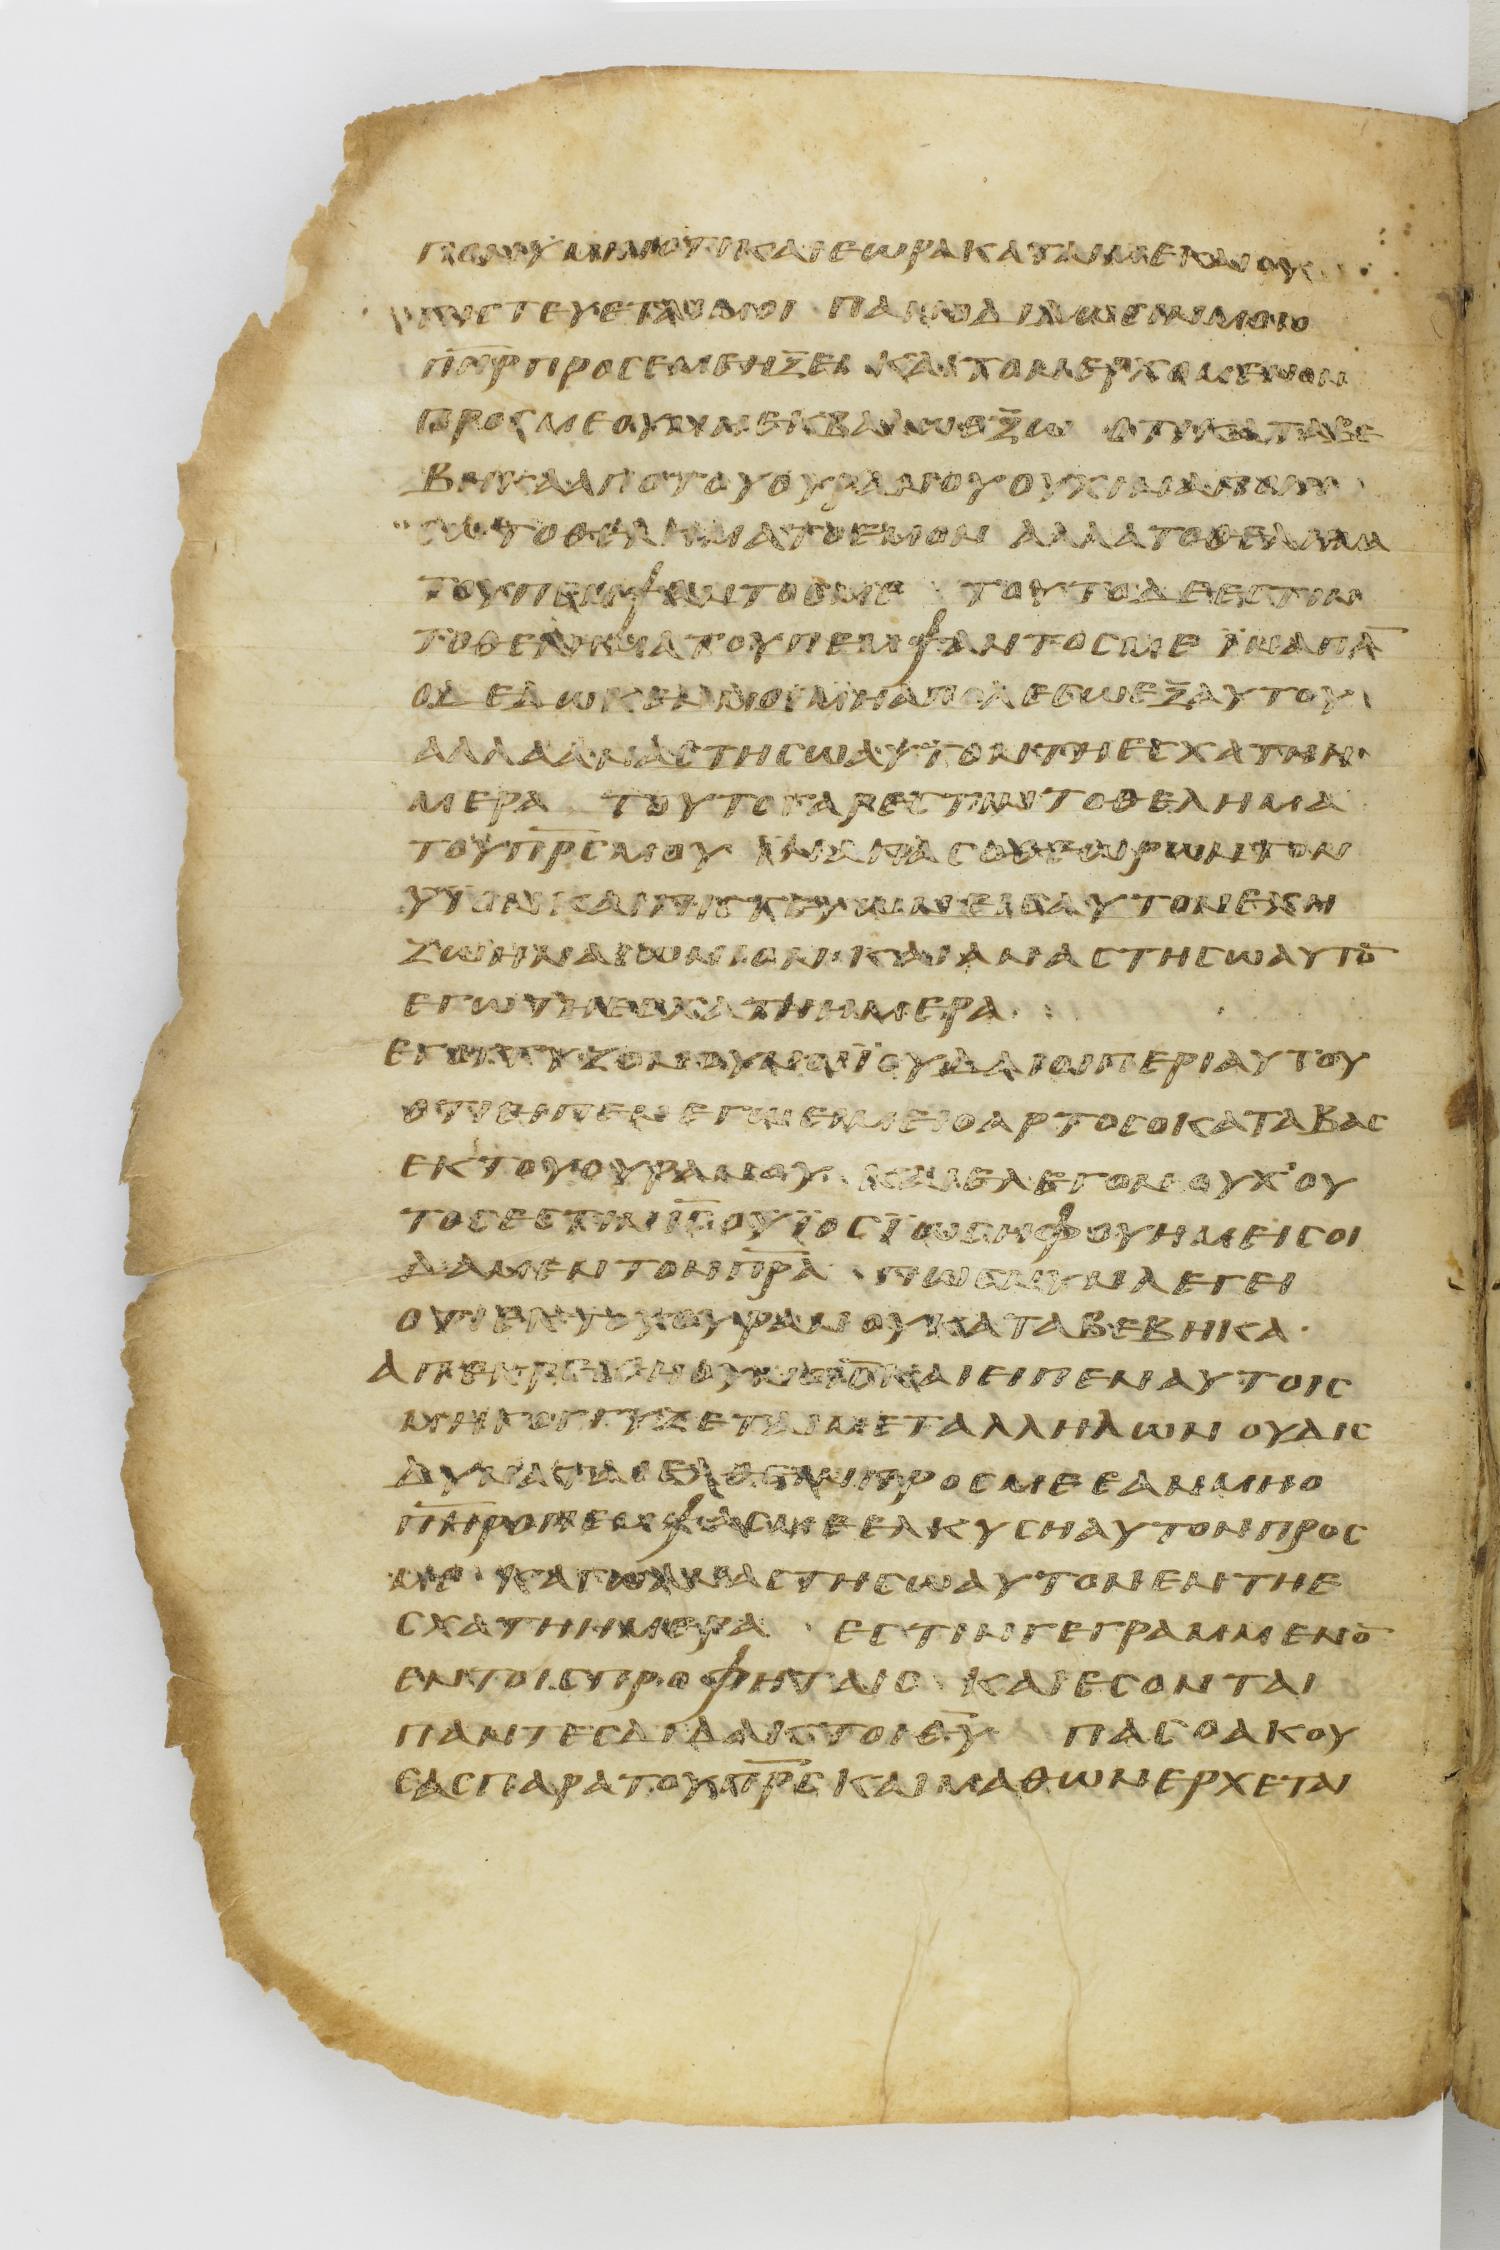 πονυμινοτικαιεωρακαταιμεκαιου
πιστευεταιμοι παν ο διδωσιν μοι ο
π̅η̅ρ̅ προσεμεηξει καιτονερχομενον
προςμεουμηεκβαλωεξω οτικαταβε
βηκααποτουουρανουουχιναποι
ωτοθεληματοεμον αλλατοθελημα
τουπεμψαντοςμε τουτοδεεστιν
τοθεληματουπεμψαντοςμε ϊναπα̅
οδεδωκενμοιμηαπολεσωεξαυτου
αλλααναστησωαυτοντηεσχατηη
μερα τουτογαρεστιντοθελημα
του π̅ρ̅ς̅ μου ϊναπαςοθεωρωντον
υιονκαιπιστευωνειςαυτονεχη
ζωηναιωνιονκαιαναστησωαυτο̅
εγωτηεσχατηημερα
εγογγυζονουνοιϊουδαιοιπεριαυτου
οτιειπενεγωειμειοαρτοςοκαταβας
εκτουουρανου καιελεγονουχ'ου
τοςεστιν ι̅ς̅ ουϊοςϊωσηφουημειςοι
δαμεντον π̅ρ̅α̅ πωςνυνλεγει
οτιεκτουουρανουκαταβεβηκα
απεκριθηουν ι̅ς̅ καιειπεναυτοις
μηγογγυζετεμεταλληλωνουδις
δυναταιελθεινπροςμεεανμηο
π̅η̅ρ̅ οπεμψαςμεελκυσηαυτονπρος
με καγωαναστησωαυτονεντηε
σχατηημερα εστινγεγραμμενο̅
εντοιςπροφηταις καιεσονται
παντεςδιδακτοι θ̅υ̅ παςοακου
σαςπαρατου π̅ρ̅ς̅ καιμαθωνερχεται